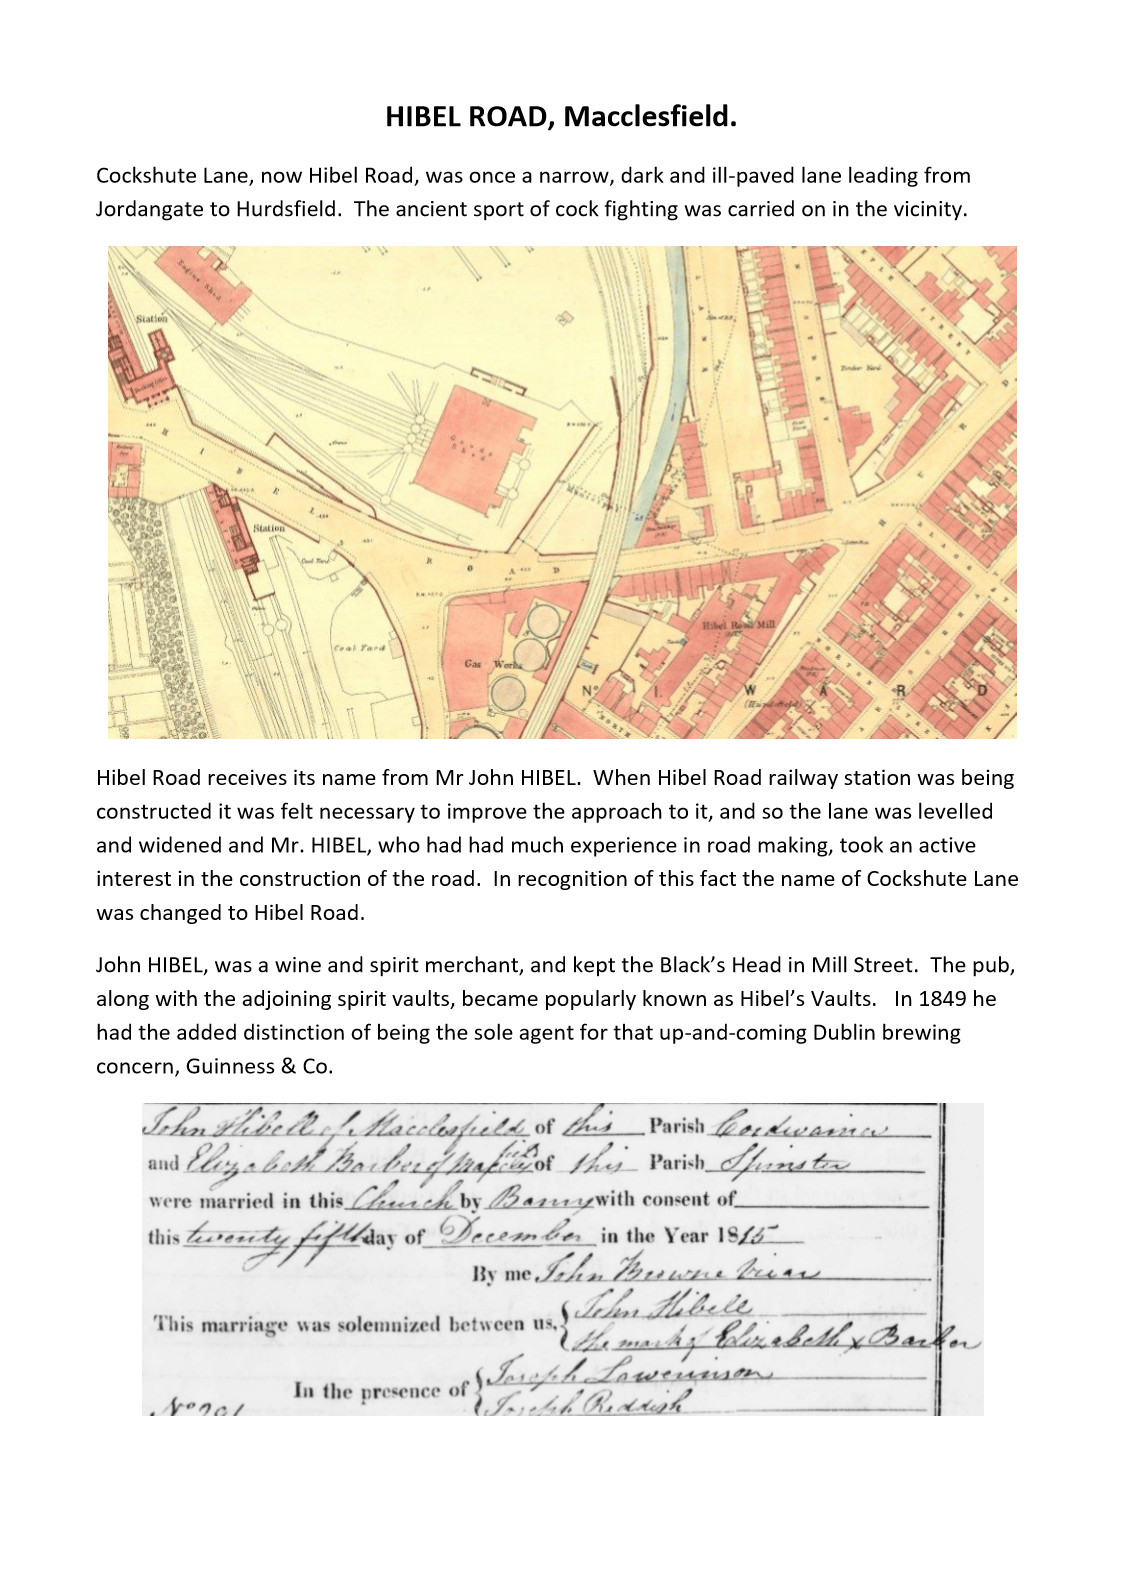 HIBEL ROAD, Macclesfield.
Cockshute Lane, now Hibel Road, was once a narrow, dark and ill-paved lane leading from
Jordangate to Hurdsfield.  The ancient sport of cock fighting was carried on in the vicinity.
Engine Shed
Station
Booking Office
Timber Yard
Goods Shed
HIBEL ROAD
Station
Coal Yard
Coal Yard
Hibel Road Mill
Gas Works
No. 1. WARD
(Hurdsfield)
Hibel Road receives its name from Mr John HIBEL.  When Hibel Road railway station was being
constructed it was felt necessary to improve the approach to it, and so the lane was levelled
and widened and Mr. HIBEL, who had had much experience in road making, took an active
interest in the construction of the road.  In recognition of this fact the name of Cockshute Lane
was changed to Hibel Road.
John HIBEL, was a wine and spirit merchant, and kept the Black’s Head in Mill Street.  The pub,
along with the adjoining spirit vaults, became popularly known as Hibel’s Vaults.   In 1849 he
had the added distinction of being the sole agent for that up-and-coming Dublin brewing
concern, Guinness & Co.
John Hibell of Macclesfield of this Parish Cordwainer
and Elizabeth Barber of of this Parish Spinster
were married in this Church by Banns with consent of
this twenty fifth day of December in the Year 1815
By me John Browne Vicar
This marriage was solemnized between us, John Hibell
the mark of Elizabeth x Barber
In the presence of Joseph Lawenison
Joseph Reddish